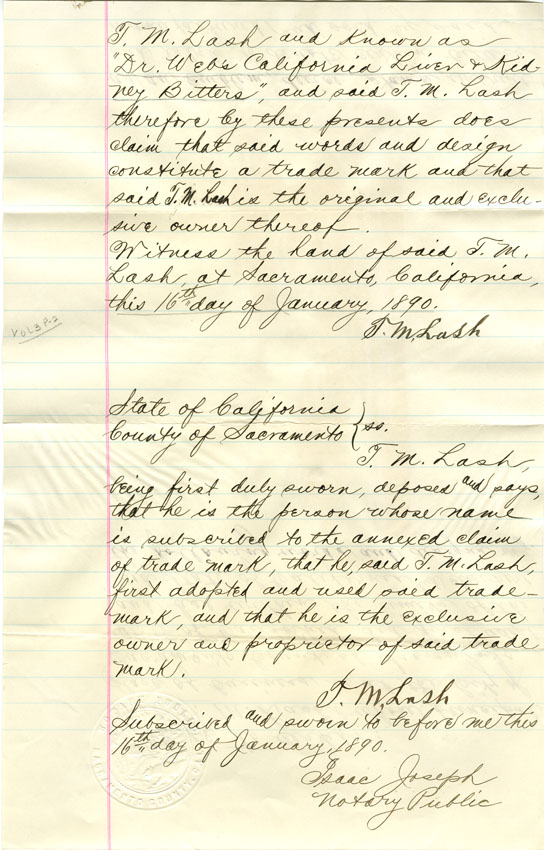 T. M. Lash and known as
"Dr. Webs California Liver & Kid-
ney Bitters", and said T. M. Lash
therefore by these presents does
claim that said words and design
constitute a trade mark and that
said T. M. Lash is the original and exclu-
sive owner thereof.
Witness the hand of said T. M.
Lash, at Sacramento, California,
this 16th day of January, 1890.
T. M. Lash
VOL 3 P-2
State of California
County of Sacramento } ss.
T. M. Lash,
being first duly sworn, deposed and says,
that he is the person whose name
is subscribed to the annexed claim
of trade mark, that he, said T. M. Lash,
first adopted and used said trade-
mark, and that he is the exclusive
owner and proprietor of said trade
mark.
T. M. Lash
Subscribed and sworn to before me this
16th day of January, 1890.
Isaac Joseph
Notary Public